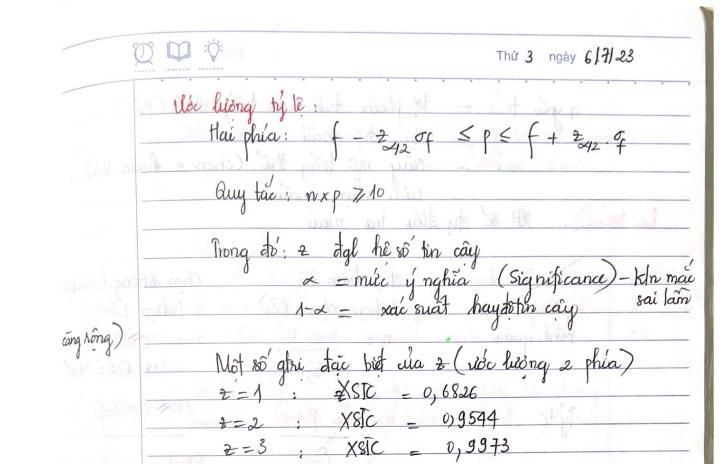 Thứ 3 ngày 6/7/23
Ước lượng tỷ lệ:
Hai phía: f - z_{α/2} σ_f ≤ p ≤ f + z_{α/2} . σ_f
Quy tắc: n x p ≥ 10
Trong đó: z đgl hệ số tin cậy
α = mức ý nghĩa (Significance) - kln mắc sai lầm
1-α = xác suất hay độ tin cậy
càng rộng)
Một số gtri đặc biệt của z (ước lượng 2 phía)
z = 1 : XSTC = 0,6826
z = 2 : XSTC = 0,9544
z = 3 : XSTC = 0,9973